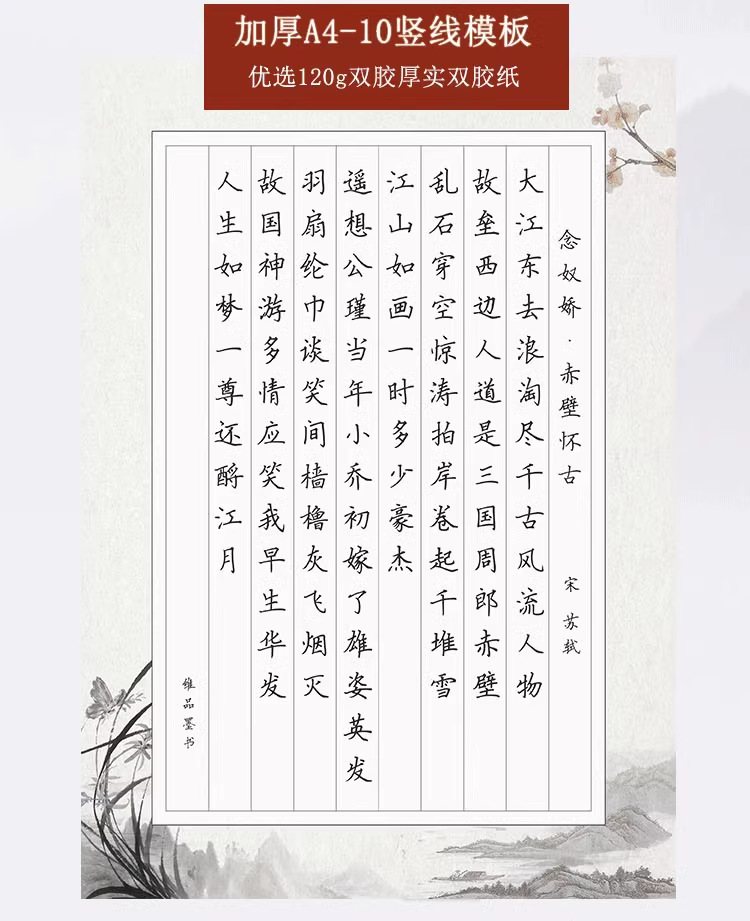 加厚A4-10竖线模板
优选120g双胶厚实双胶纸
念奴娇·赤壁怀古
宋 苏轼
大江东去浪淘尽千古风流人物
故垒西边人道是三国周郎赤壁
乱石穿空惊涛拍岸卷起千堆雪
江山如画一时多少豪杰
遥想公瑾当年小乔初嫁了雄姿英发
羽扇纶巾谈笑间樯橹灰飞烟灭
故国神游多情应笑我早生华发
人生如梦一尊还酹江月
雒品墨书